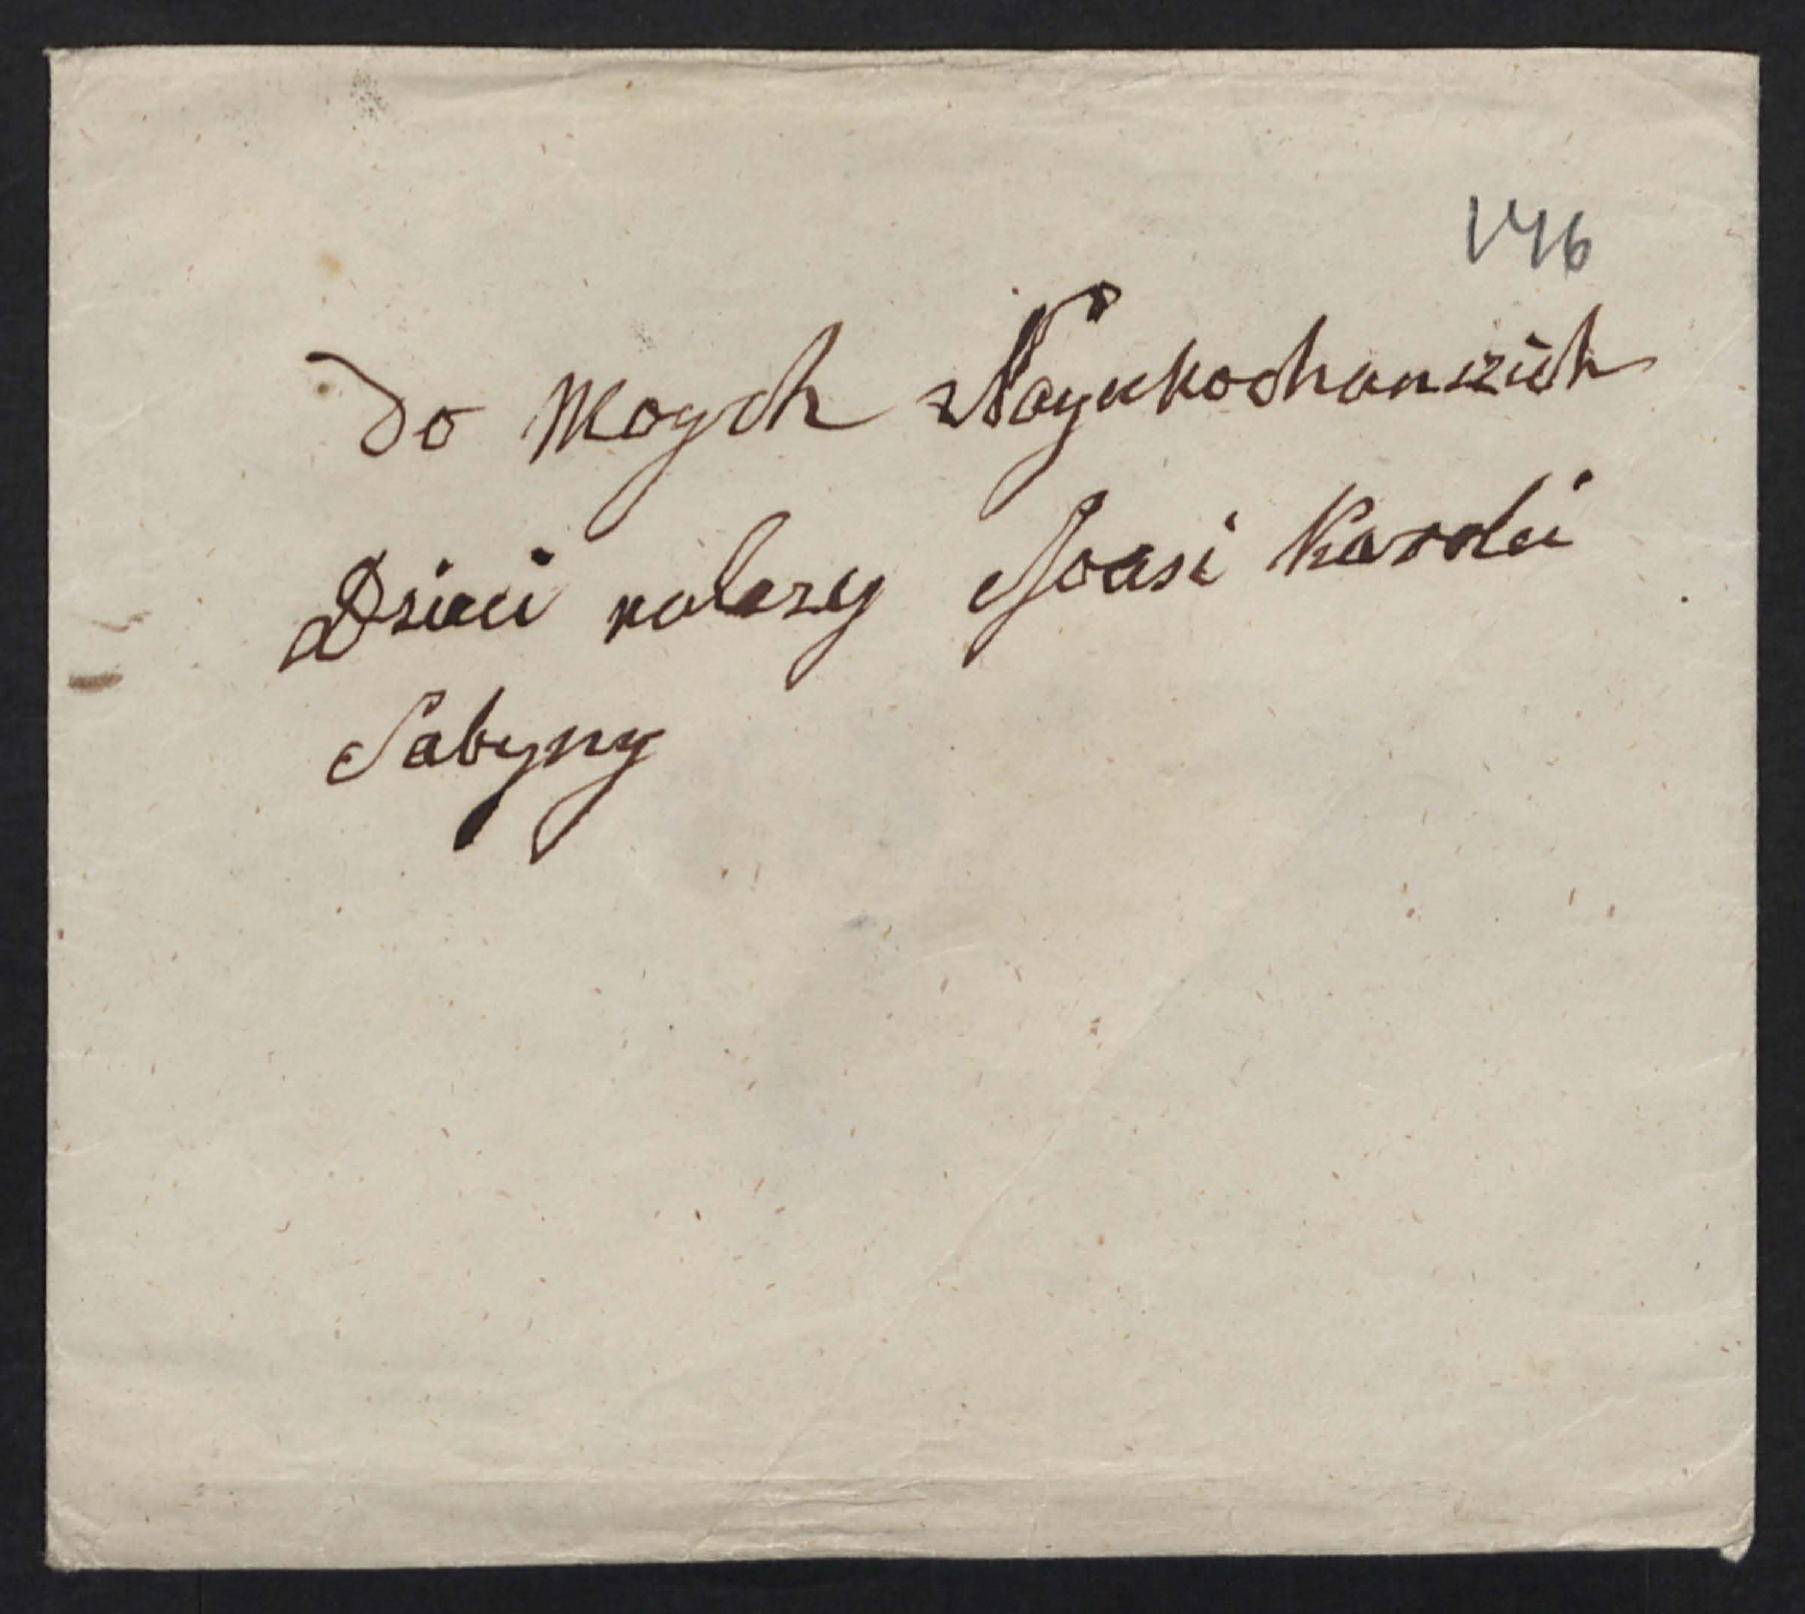 146
Do Moych Nayukochanszich
Dzieci nalezy Joasi Karolci
Sabyny